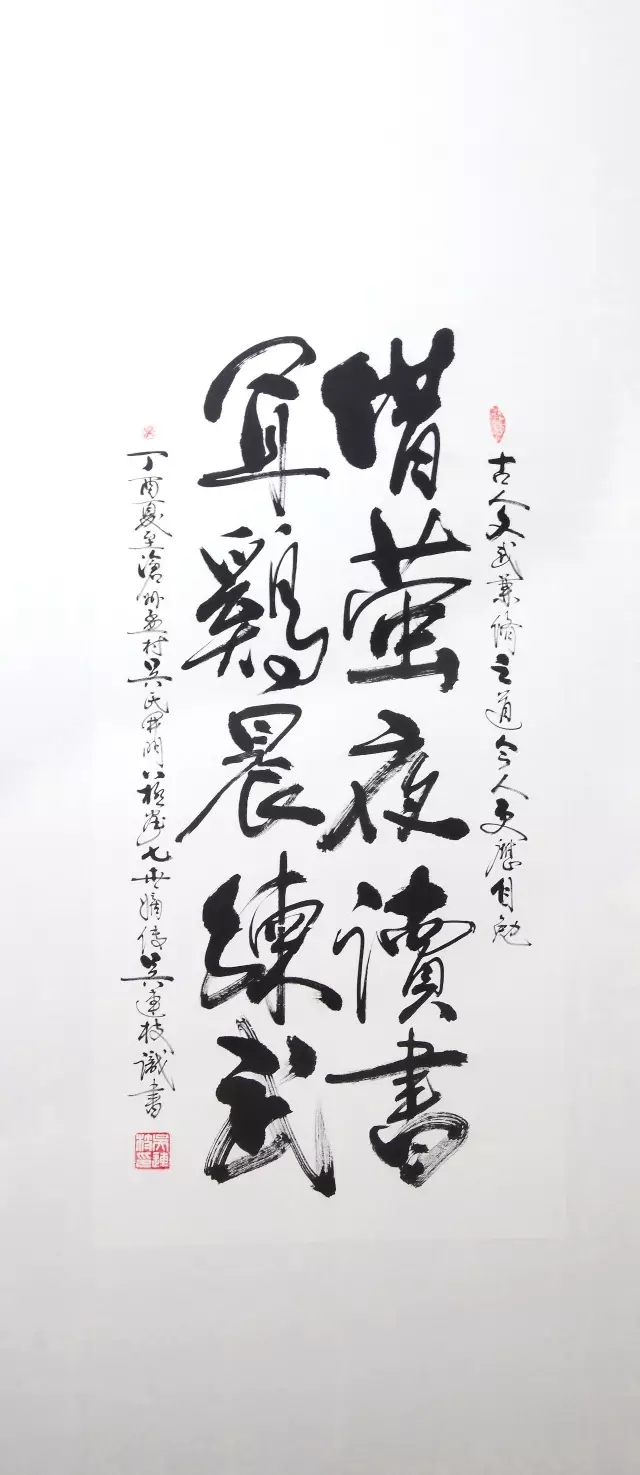 古人文武兼修之道今人更應自勉
借萤夜讀書
聞鷄晨練武
丁酉夏至滄州孟村吳氏開門八極拳七世嫡傳吳連枝識書
吳連枝印